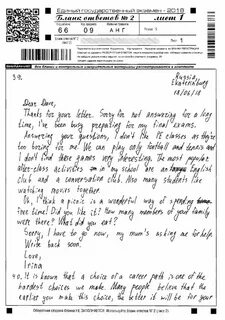 Единый государственный экзамен - 2018
Бланк ответов № 2 лист 1
66 09 АНГ 1
39.
Russia,
Ekaterinburg
18/06/18
Dear Dave,
Thanks for your letter. Sorry for not answering for a long
time, I've been busy preparing for my final exams.
Answering your questions, I don't like PE classes as they're
too boring for me. We can play only football and tennis and
I don't find these games very interesting. The most popular
after-class activities in our school are an English
club and a conversation club. Also many students like
watching movies together.
Oh, I think a picnic is a wonderful way of spending
free time! Did you like it? How many members of your family
were there? What did you eat?
Sorry, I have to go now, my mum's asking me for help.
Write back soon.
Love,
Irina
40. It is known that a choice of a career path is one of the
hardest choices we make. Many people believe that the
earlier you make this choice, the better it will be for your